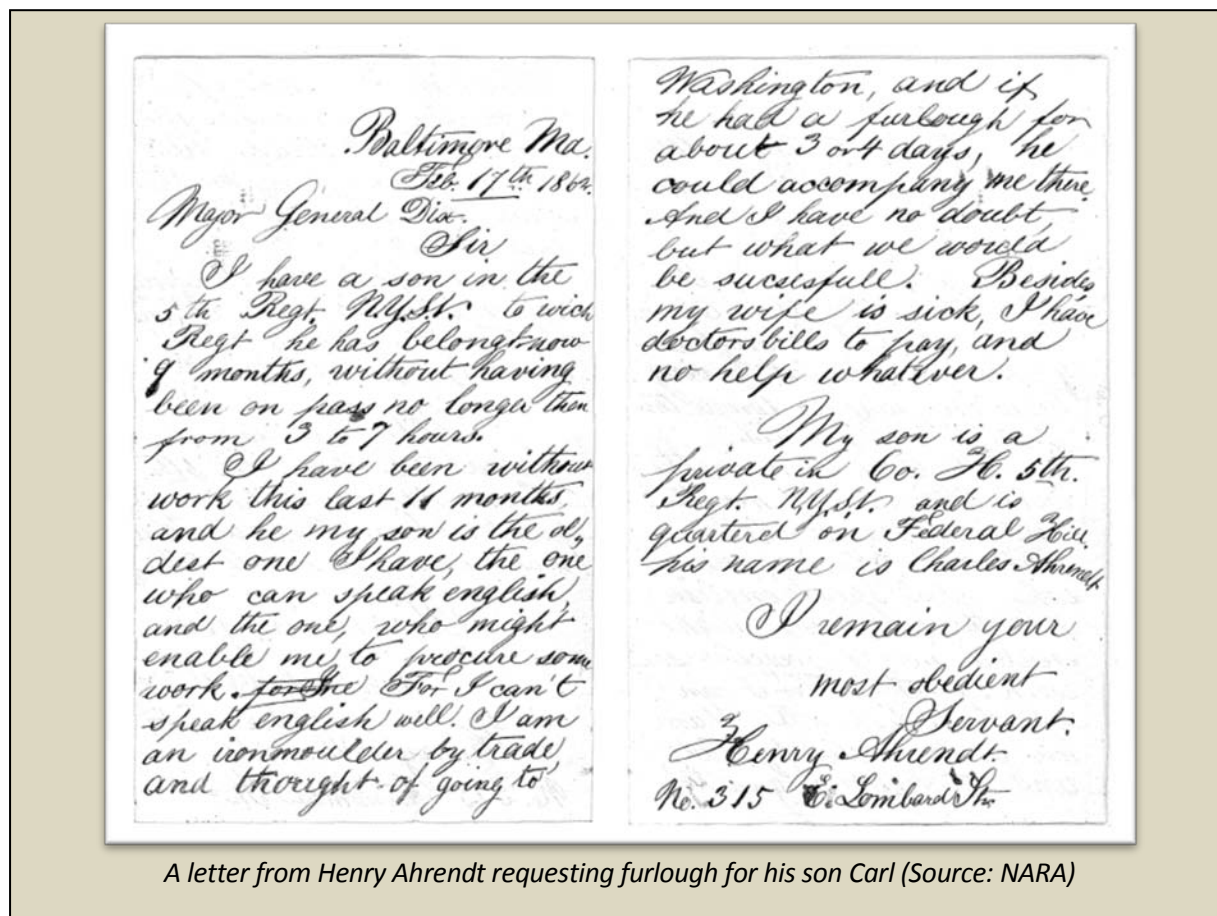 Baltimore Md.
Feb. 17th 1862.
Major General Dix.
Sir
I have a son in the
5th Regt. N.Y.S.V. to wich
Regt he has belongt now
9 months, without having
been on pass no longer then
from 3 to 7 hours.
I have been without
work this last 11 months,
and he my son is the ol„
dest one I have, the one
who can speak english,
and the one, who might
enable me to procure some
work. for the For I can't
speak english well. I am
an ironmoulder by trade,
and thought of going to
Washington, and if
he had a furlough for
about 3 or 4 days, he
could accompany me there
And I have no doubt,
but what we would
be sucsesfull. Besides,
my wife is sick, I have
doctorsbills to pay, and
no help whatever.
My son is a
private in Co. H. 5th.
Regt. N.Y.S.V. and is
quarterd on Federal Hill
his name is Charles Ahrendt.
I remain your
most obedient
Servant.
Henry Ahrendt.
No. 315 E. Lombard Str.
A letter from Henry Ahrendt requesting furlough for his son Carl (Source: NARA)